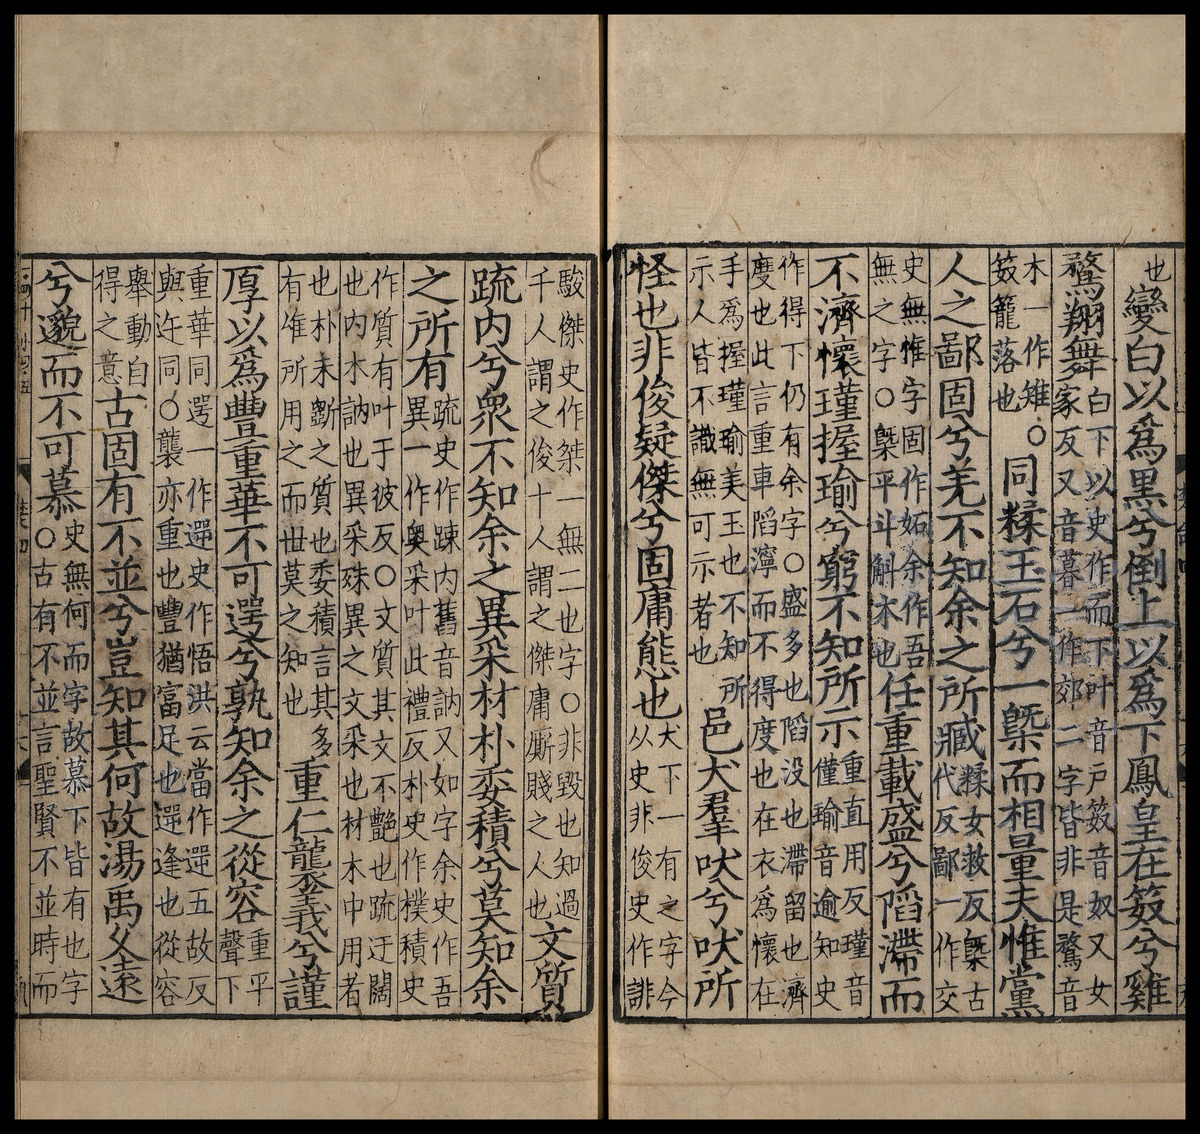 也變白以爲黒兮倒上以爲下鳳皇在笯兮雞
鶩翔舞
白下以史作而下下叶音戶笯音奴又女
家反又音暮一作郊二字皆非是鶩音
木一作雉○
笯籠落也
同糅玉石兮一槩而相量夫惟黨
人之鄙固兮羌不知余之所臧
糅女救反槩古
代反鄙一作交
史無惟字固作妬余作吾
無之字○槩平斗斛木也
任重載盛兮陷滯而
不濟懷瑾握瑜兮窮不知所示
重直用反瑾音
僅瑜音逾知史
作得下仍有余字○盛多也陷没也滯留也濟
度也此言重車陷濘而不得度也在衣爲懷在
手爲握瑾瑜美玉也不知所
示人皆不識無可示者也
邑犬羣吠兮吠所
怪也非俊疑傑兮固庸態也
犬下一有之字今
从史非俊史作誹
駿傑史作桀一無二也字○非毀也知過
千人謂之俊十人謂之傑庸厮賤之人也
文質
疏内兮衆不知余之異采材朴委積兮莫知余
之所有
疏史作踈内舊音訥又如字余史作吾
異一作奥采叶此禮反朴史作樸積史
作質有叶于彼反○文質其文不艷也疏迂闊
也内木訥也異采殊異之文采也材木中用者
也朴未斵之質也委積言其多
有惟所用之而世莫之知也
重仁襲義兮謹
厚以爲豐重華不可遌兮孰知余之從容
重平
聲下
重華同遌一作遻史作悟洪云當作遻五故反
與迕同○襲亦重也豐猶富足也遻逢也從容
舉動自
得之意
古固有不並兮豈知其何故湯禹久遠
兮邈而不可慕
史無何而字故慕下皆有也字
○古有不並言聖賢不並時而